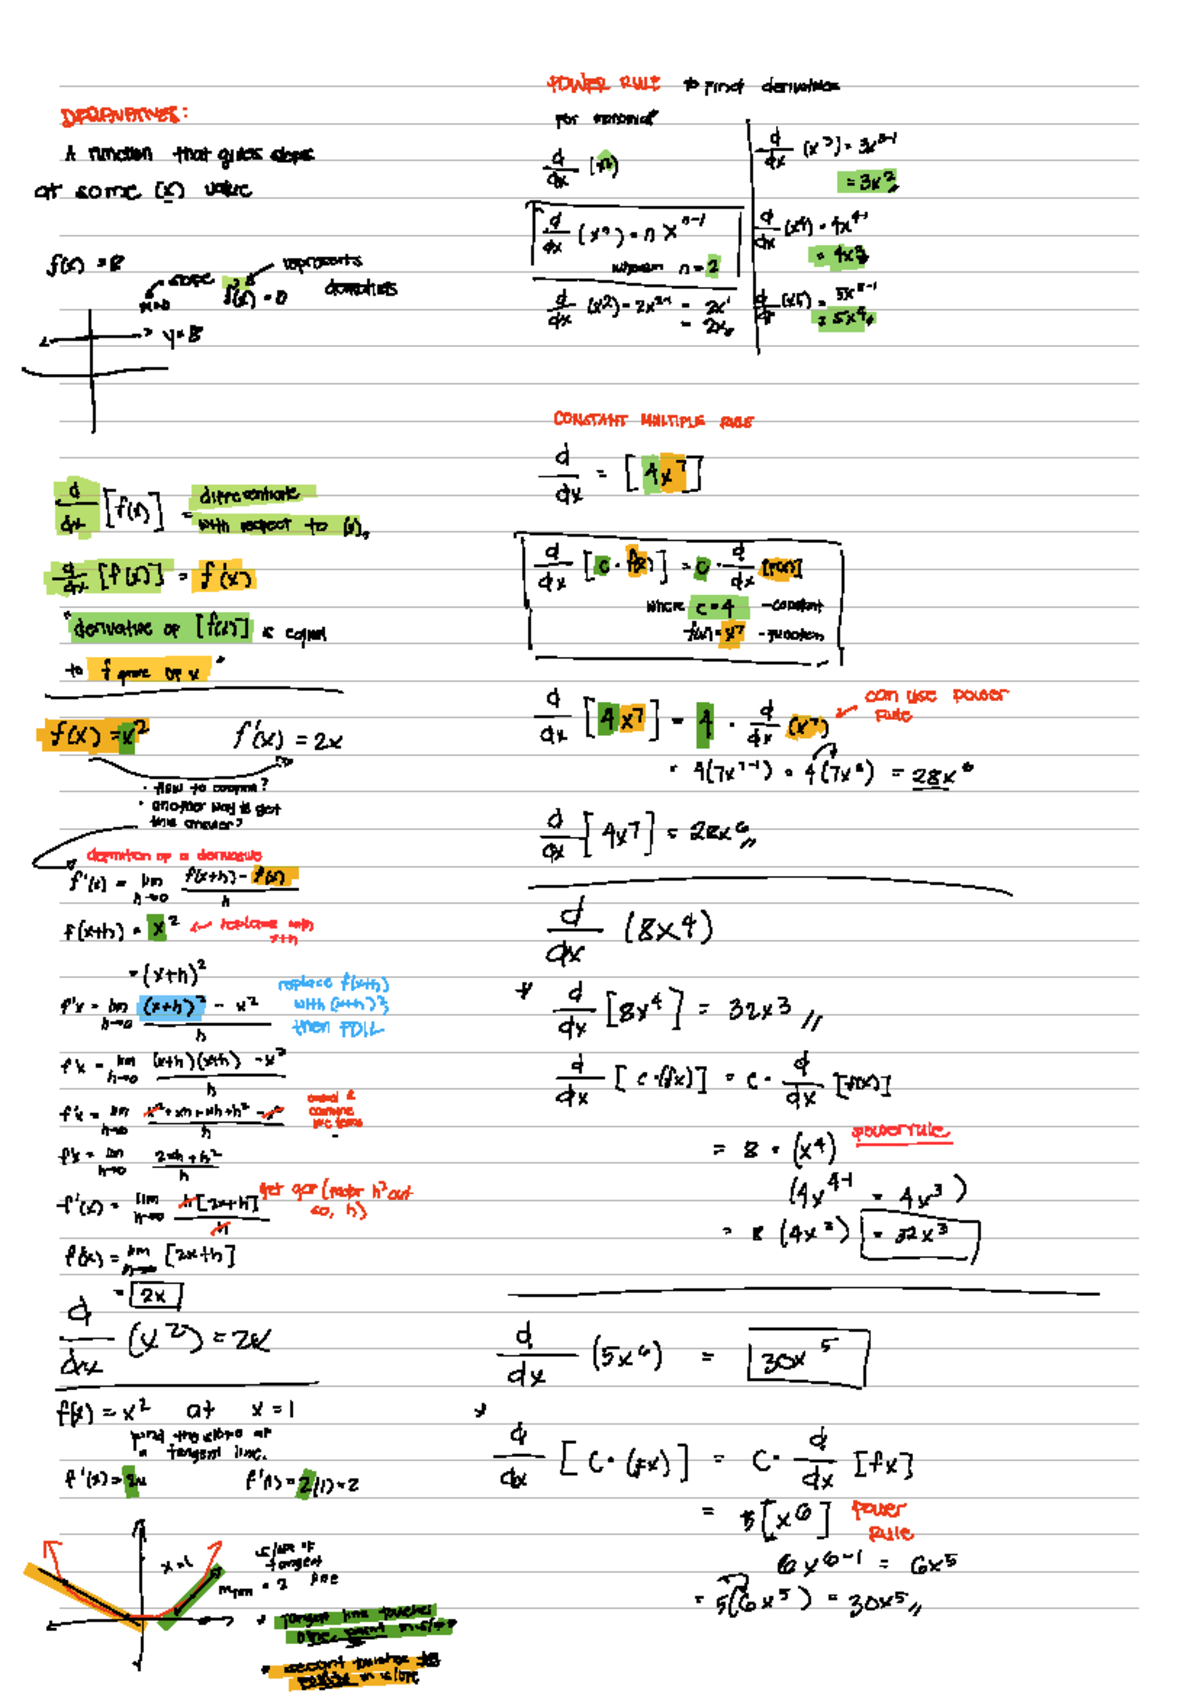 DERIVATIVES:
A function that gives slope
at some (x) value
f(x) = 8
slope
represents
m=0
f'(x) = 0
derivatives
y=8
d/dx [f(x)] = differentiate
with respect to (x),
d/dx [f(x)] = f'(x)
"derivative of [f(x)] is equal
to f prime of x"
f(x) = x²
f'(x) = 2x
· How to compute?
· another way to get
this answer?
definition of a derivative
f'(x) = lim h→0 f(x+h) - f(x) / h
f(x+h) = x² ← replace with
x+h
= (x+h)²
f'x = lim h→0 (x+h)² - x² / h
replace f(x+h)
with (x+h)²;
then FOIL
f'x = lim h→0 (x+h)(x+h) - x² / h
f'x = lim h→0 x² + xh + xh + h² - x² / h
cancel &
combine
like terms
f'x = lim h→0 2xh + h² / h
f'(x) = lim h→0 h[2x+h] / h
get GCF (factor h out
so, h)
f'(x) = lim h→0 [2x+h]
= 2x
d/dx (x²) = 2x
f(x) = x² at x = 1
find the slope of
a tangent line.
f'(x) = 2x
f'(1) = 2(1) = 2
x=1
slope of
tangent
line
m tan = 2
* Tangent line touches
one point
* secant touches
POWER RULE → Find derivatives
For monomial
d/dx (xⁿ)
d/dx (xⁿ) = n xⁿ⁻¹
n = 2
d/dx (x²) = 2x²⁻¹ = 2x¹
= 2x,,
d/dx (x³) = 3x³⁻¹
= 3x²,,
d/dx (x⁴) = 4x⁴⁻¹
= 4x³,,
d/dx (x⁵) = 5x⁵⁻¹
= 5x⁴,,
CONSTANT MULTIPLE RULE
d/dx = [4x⁷]
d/dx [c · f(x)] = c · d/dx [f(x)]
where c = 4 - constant
f(x) = x⁷ - function
d/dx [4x⁷] = 4 · d/dx (x⁷) ← can use power
rule
= 4(7x⁷⁻¹) = 4(7x⁶) = 28x⁶
d/dx [4x⁷] = 28x⁶,,
d/dx (8x⁴)
* d/dx [8x⁴] = 32x³,,
d/dx [c·(fx)] = c · d/dx [f(x)]
= 8 · (x⁴) power rule
(4x⁴⁻¹ = 4x³)
= 8 (4x³) = 32x³
d/dx (5x⁶) = 30x⁵
*
d/dx [c·(fx)] = c· d/dx [fx]
= 5[x⁶] power
rule
6x⁶⁻¹ = 6x⁵
= 5(6x⁵) = 30x⁵,,